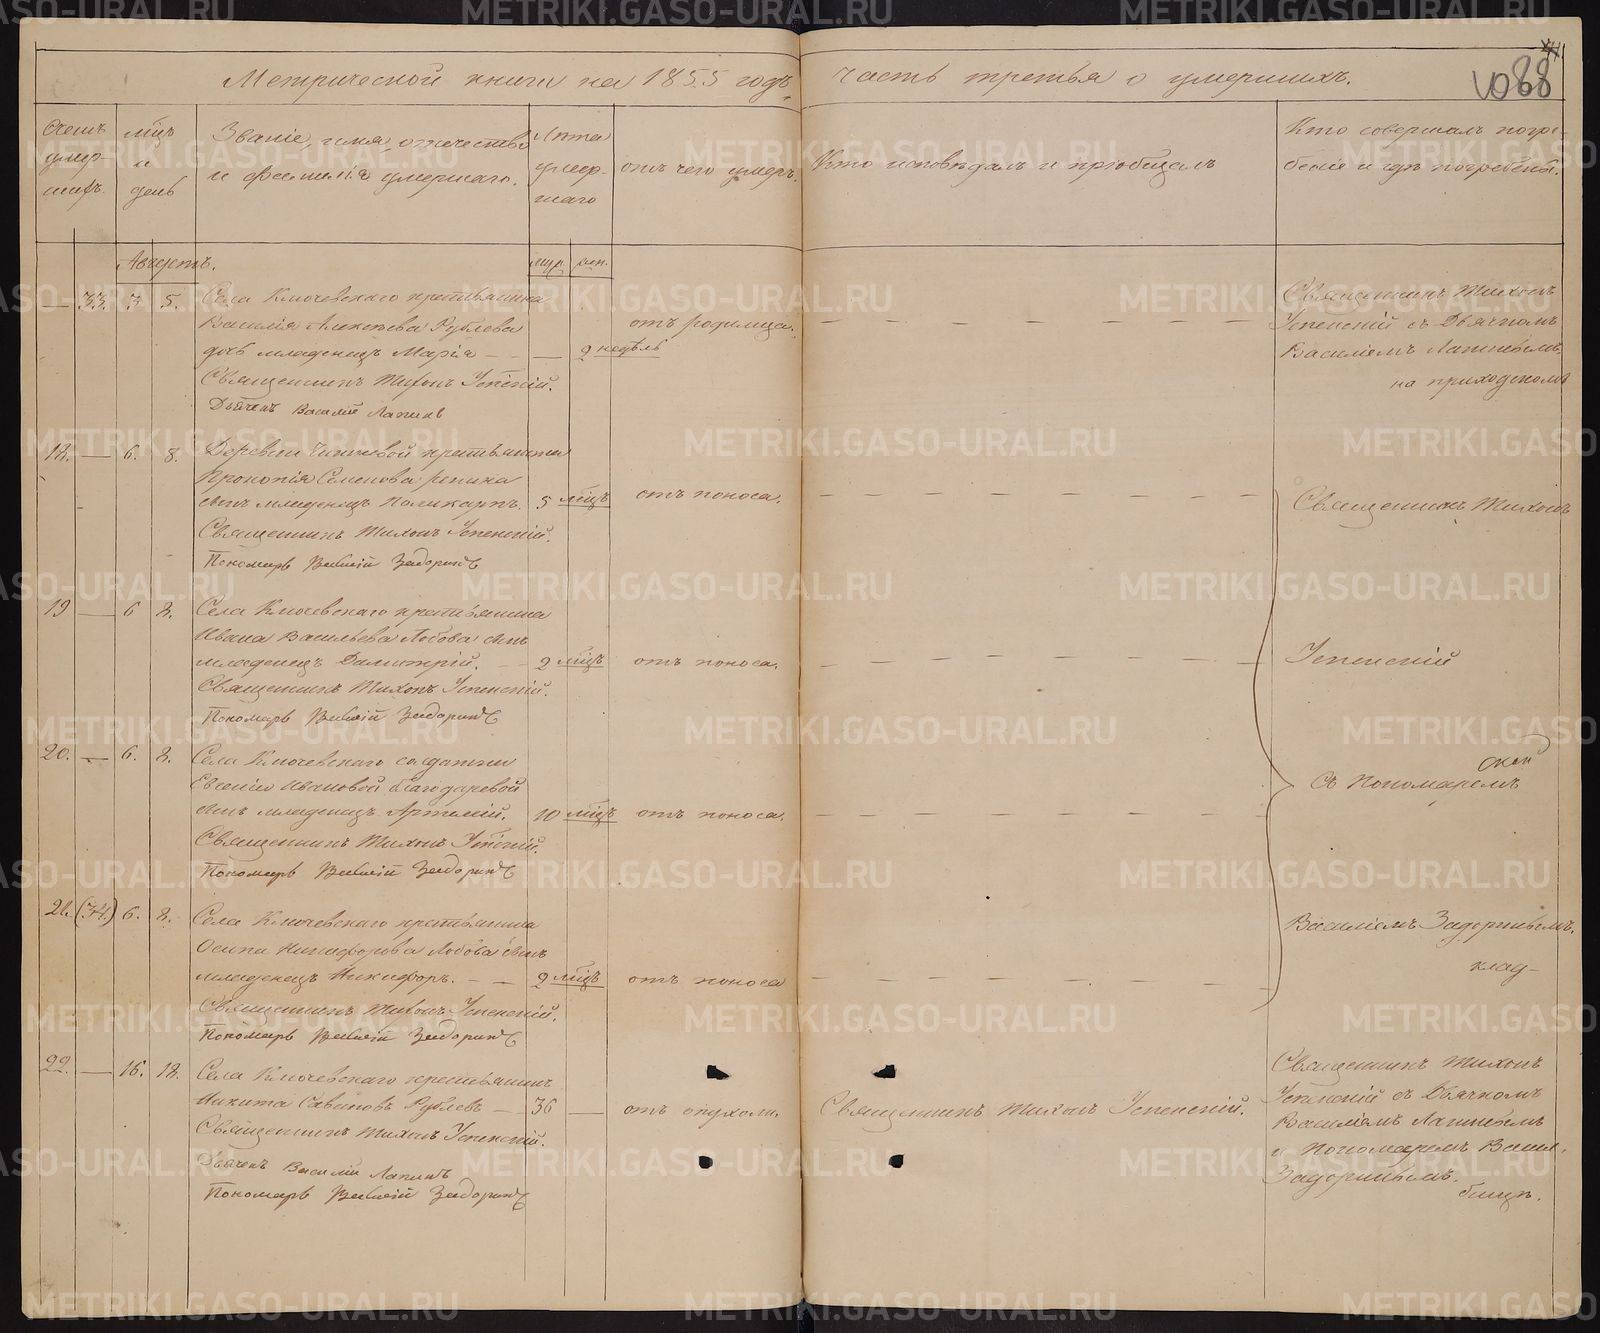 Метрической книги на 1855 годъ
часть третья о умершихъ.
88
Счетъ умершихъ.
мцъ и день
Званіе, имя, отечество и фамилія умершаго.
Лѣта умершаго
отъ чего умеръ.
Кто исповѣдалъ и пріобщалъ
Кто совершалъ погребеніе и гдѣ погребены.
Августъ.
муж. жен.
— 33. 3 5. Села Ключевскаго крестьянина
Василія Алексѣева Рублева
дочь младенецъ Марія — — 2 недѣль
отъ родимца.
Священникъ Тихонъ Успенскій.
Дьячекъ Василій Лапинъ
Священникъ Тихонъ
Успенскій съ Дьячкомъ
Василіемъ Лапинымъ,
на приходскомъ
18. — 6. 8. Деревни крестьянина
Прокопія Семенова Репина
сынъ младенецъ Поликарпъ. 5 мцъ отъ поноса.
Священникъ Тихонъ Успенскій.
Пономарь Василій Задоринъ
Священникъ Тихонъ
19 — 6 8. Села Ключевскаго крестьянина
Ивана Васильева Лобова сынъ
младенецъ Димитрій. — 2 мцъ отъ поноса.
Священникъ Тихонъ Успенскій.
Пономарь Василій Задоринъ
Успенскій
20. — 6. 8. Села Ключевскаго солдатки
Евгеніи Ивановой Благодаревой
сынъ младенецъ Артемій. 10 мцъ отъ поноса.
Священникъ Тихонъ Успенскій.
Пономарь Василій Задоринъ
ской
Съ Пономаремъ
21. (34.) 6. 8. Села Ключевскаго крестьянина
Осипа Никифорова Лобова сынъ
младенецъ Никифоръ. — — 2 мцъ отъ поноса
Священникъ Тихонъ Успенскій.
Пономарь Василій Задоринъ
Василіемъ Задоринымъ.
клад-
22. — 16. 18. Села Ключевскаго крестьянинъ
Никита Савиновъ Рублевъ — 36 — отъ опухоли.
Священникъ Тихонъ Успенскій.
Священникъ Тихонъ Успенскій.
Дьячекъ Василій Лапинъ
Пономарь Василій Задоринъ
Священникъ Тихонъ
Успенскій съ Дьячкомъ
Василіемъ Лапинымъ
и Пономаремъ Васил.
Задоринымъ.
бищѣ.
METRIKI.GASO-URAL.RU